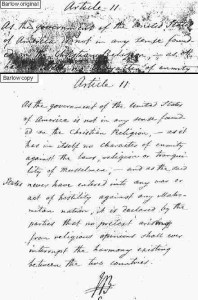 Barlow original
Article 11.
As the government of the United States
of America is not in any sense found
Barlow copy
Article 11
As the government of the United States
of America is not in any sense found
ed on the Christian Religion, – as it
has in itself no character of enmity
against the laws, religion or tranqui
lity of Musselmen, – and as the said
States never have entered into any war or
act of hostility against any Mahom
etan nation, it is declared by the
parties that no pretext arising
from religious opinions shall ever
interrupt the harmony existing
between the two countries.